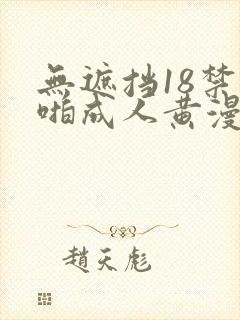 無遮挡18禁
啪成人黄漫
趙天彪